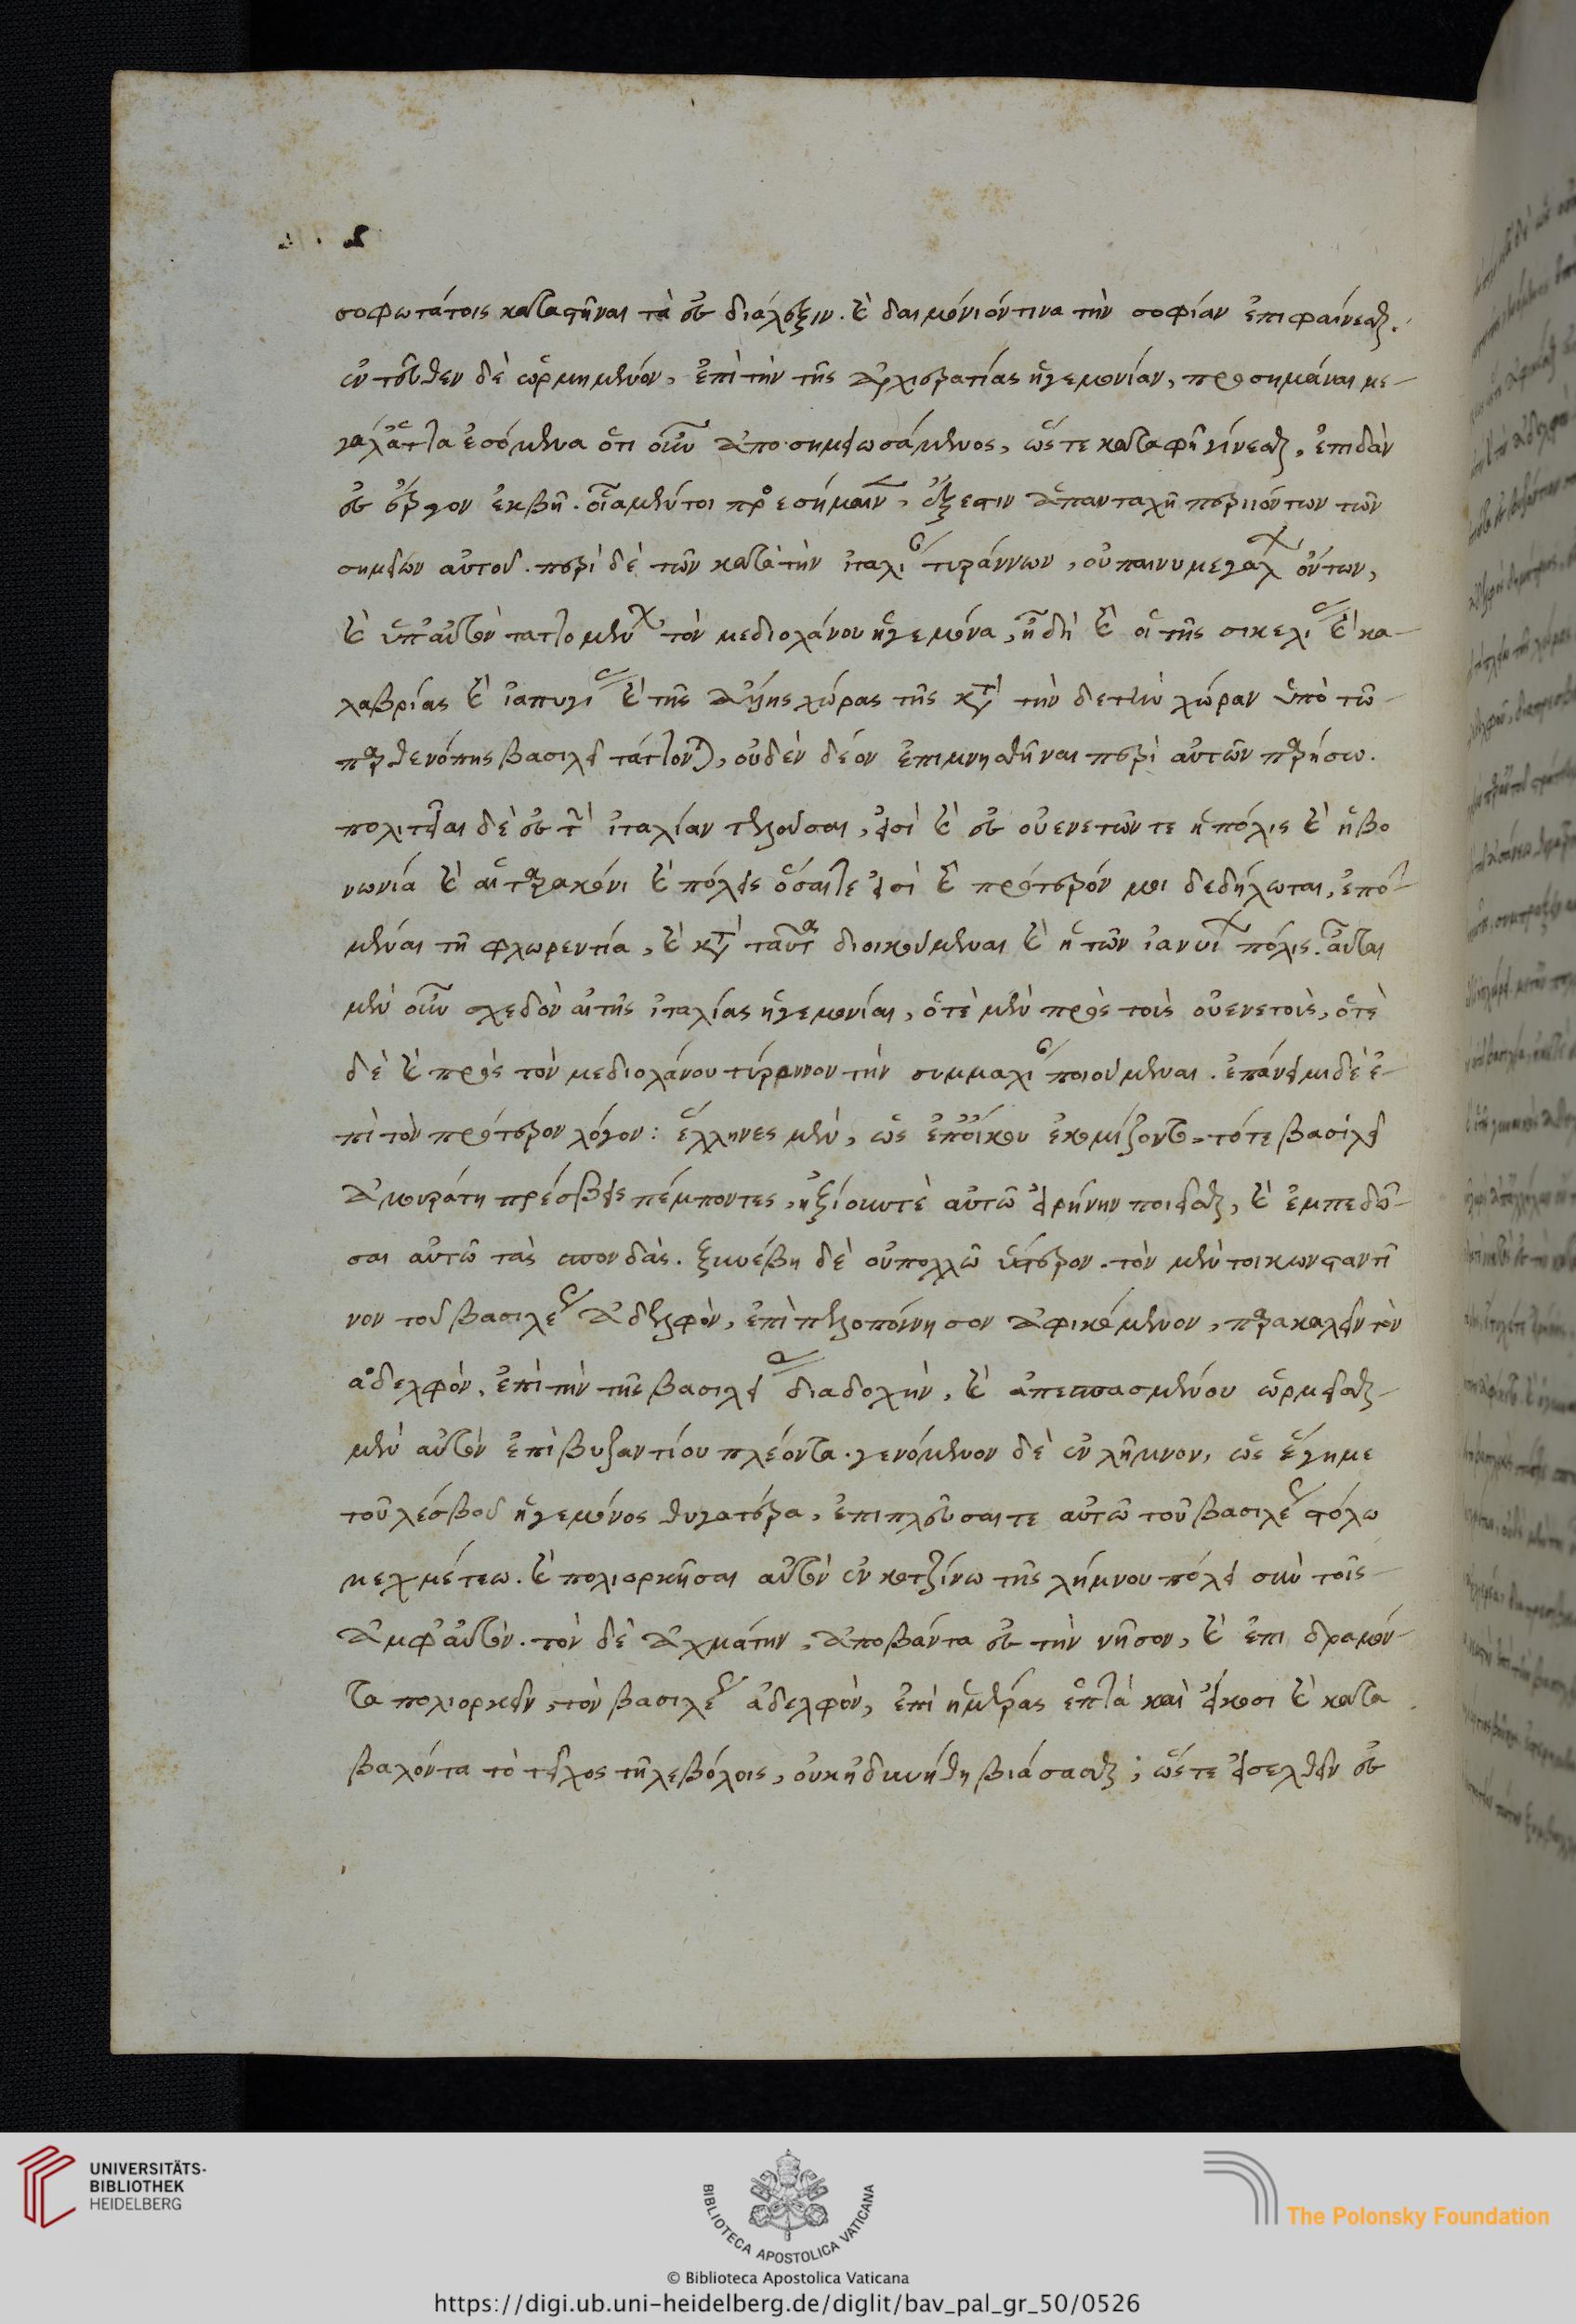 σοφωτάτοις καταστῆναι τὰ ἐς διάλεξιν. καὶ δαιμόνιόν τινα τὴν σοφίαν ἐπιφαίνεσθαι.
ἐντεῦθεν δὲ ὡρμημένον, ἐπὶ τὴν τῆς ἀρχιερατίας ἡγεμονίαν, προσημάναι με-
γάλα ἄττα ἐσόμενα ὅτι οὖν ἀποσημειωσάμενος, ὥστε καταφῆ γίνεσθαι, ἐπειδὰν
ἐς ἔργον ἐκβῆ. οἷα μέντοι προεσήμαινεν, ἔξεστιν ἁπανταχῆ περιιόντων τῶν
σημείων αὐτοῦ. περὶ δὲ τῶν κατὰ τὴν ἰταλίαν τυράννων, οὐ πάνυ μεγάλων ὄντων,
καὶ ὑπ' αὐτὸν ταττομένων τὸν μεδιολάνου ἡγεμόνα, ἤδη καὶ οἱ τῆς σικελίας καὶ κα-
λαβρίας καὶ ἰαπυγίας καὶ τῆς ἄλλης χώρας τῆς κατὰ τὴν δε τὴν χώραν ὑπὸ τῶ
παρθενόπης βασιλεῖ τάττονται, οὐδὲν δέον ἐπιμνησθῆναι περὶ αὐτῶν παρήσω.
πολιτεῖαι δὲ ἐς τὴν ἰταλίαν τελοῦσαι, εἰσὶ καὶ ἐς οὐενετῶν τε ἡ πόλις καὶ ἡ βο
νωνία καὶ αἱ ταρακόνι καὶ πόλεις ὅσαι τε εἰσὶ καὶ πρότερόν μοι δεδήλωται, ἑπό-
μεναι τῆ φλωρεντία, καὶ κατὰ ταῦτα διοικούμεναι καὶ ἡ τῶν ἰανυίων πόλις. αὗται
μὲν οὖν σχεδὸν αἱ τῆς ἰταλίας ἡγεμονίαι, ὁτὲ μὲν πρὸς τοὺς οὐενετοὺς, ὁτὲ
δὲ καὶ πρὸς τὸν μεδιολάνου τύραννον τὴν συμμαχίαν ποιούμεναι. ἐπάνειμι δὲ ἐ-
πὶ τὸν πρότερον λόγον: ἕλληνες μὲν, ὡς ἐπ' οἴκου ἐκομίζοντο, τότε βασιλεῖ
ἀμουράτη πρέσβεις πέμποντες, ἠξίουν τὲ αὐτῶ εἰρήνην ποιεῖσθαι, καὶ ἐμπεδῶ-
σαι αὐτῶ τὰς σπονδάς. ξυνέβη δὲ οὐ πολλῶ ὕστερον. τὸν μέν τοι κωνσταντῖ
νον τοῦ βασιλέως ἀδελφὸν, ἐπὶ πελοπόννησον ἀφικόμενον, παρακαλεῖν τὸν
ἀδελφὸν, ἐπὶ τὴν τῆς βασιλείας διαδοχὴν, καὶ ἀπεσπασμένου ὡρμεῖσθαι
μὲν αὐτὸν ἐπὶ βυζαντίου πλέοντα. γενόμενον δὲ ἐν λῆμνον, ὡς ἔγημε
τοῦ λέσβου ἡγεμόνος θυγατέρα, ἐπιπλεῦσαι τε αὐτῶ τοῦ βασιλέως στόλω
μεχμέτεω. καὶ πολιορκῆσαι αὐτὸν ἐν κοτζίνω τῆς λήμνου πόλει σὺν τοῖς
ἀμφ' αὐτὸν. τὸν δὲ ἀχμάτην, ἀποβάντα ἐς τὴν νῆσον, καὶ ἐπιδραμόν-
τα πολιορκεῖν, τὸν βασιλέως ἀδελφὸν, ἐπὶ ἡμέρας ἑπτὰ καὶ εἴκοσι καὶ κατα
βαλόντα τὸ τεῖχος τηλεβόλοις, οὐκ ἠδυνήθη βιάσασθαι; ὥστε εἰσελθεῖν ἐς
UNIVERSITÄTS-
BIBLIOTHEK
HEIDELBERG
BIBLIOTECA APOSTOLICA VATICANA
The Polonsky Foundation
© Biblioteca Apostolica Vaticana
https://digi.ub.uni-heidelberg.de/diglit/bav_pal_gr_50/0526